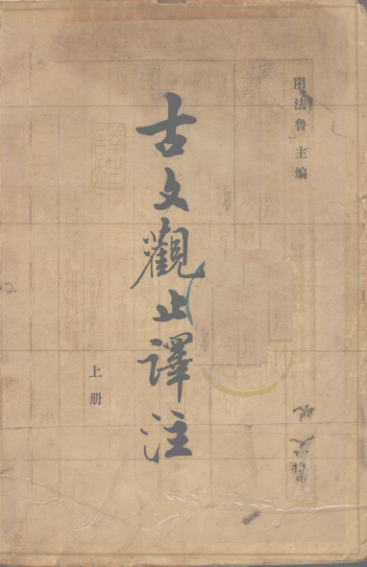 阴法鲁主编
古文觀止譯注
上册